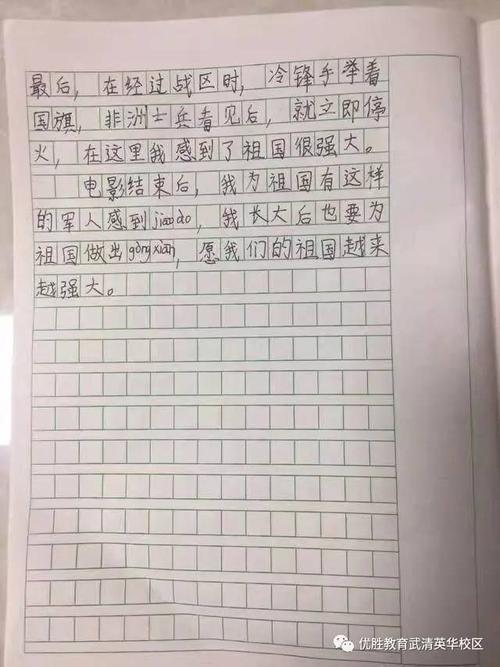 最后，在经过战区时，冷锋手举着
国旗，非洲士兵看见后，就立即停
火，在这里我感到了祖国很强大。
电影结束后，我为祖国有这样
的军人感到jiāoào，我长大后也要为
祖国做出gòngxiàn，愿我们的祖国越来
越强大。
优胜教育武清英华校区